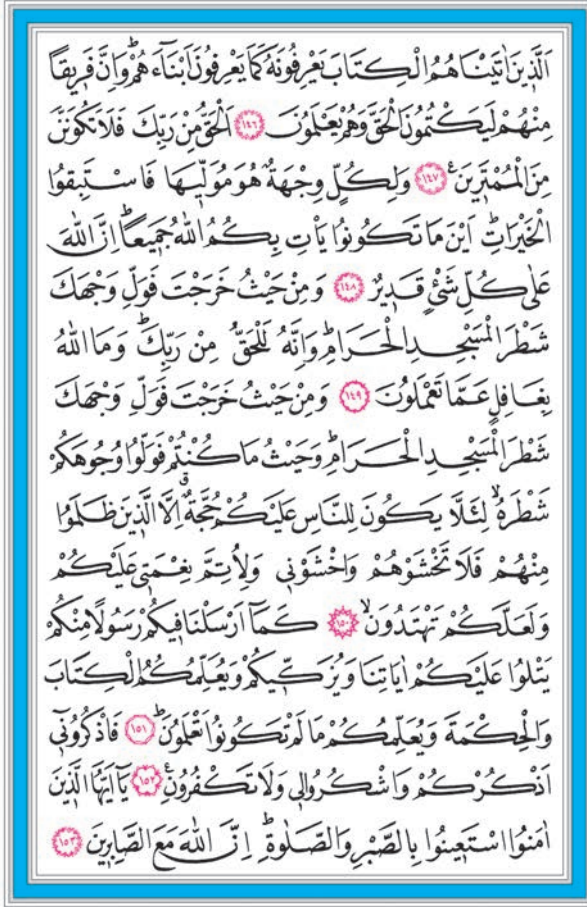 اَلَّذِينَ اٰتَيْنَاهُمُ الْكِتَابَ يَعْرِفُونَهُ كَمَا يَعْرِفُونَ اَبْنَٓاءَهُمْۜ وَاِنَّ فَرِيقًا
مِنْهُمْ لَيَكْتُمُونَ الْحَقَّ وَهُمْ يَعْلَمُونَ ﴿١٤٦﴾ اَلْحَقُّ مِنْ رَبِّكَ فَلَا تَكُونَنَّ
مِنَ الْمُمْتَرِينَ۟ ﴿١٤٧﴾ وَلِكُلٍّ وِجْهَةٌ هُوَ مُوَلِّيهَا فَاسْتَبِقُوا
الْخَيْرَاتِۜ اَيْنَ مَا تَكُونُوا يَأْتِ بِكُمُ اللّٰهُ جَمِيعًاۜ اِنَّ اللّٰهَ
عَلٰى كُلِّ شَيْءٍ قَدِيرٌ ﴿١٤٨﴾ وَمِنْ حَيْثُ خَرَجْتَ فَوَلِّ وَجْهَكَ
شَطْرَ الْمَسْجِدِ الْحَرَامِۜ وَاِنَّهُ لَلْحَقُّ مِنْ رَبِّكَۜ وَمَا اللّٰهُ
بِغَافِلٍ عَمَّا تَعْمَلُونَ ﴿١٤٩﴾ وَمِنْ حَيْثُ خَرَجْتَ فَوَلِّ وَجْهَكَ
شَطْرَ الْمَسْجِدِ الْحَرَامِۜ وَحَيْثُ مَا كُنْتُمْ فَوَلُّوا وُجُوهَكُمْ
شَطْرَهُۙ لِئَلَّا يَكُونَ لِلنَّاسِ عَلَيْكُمْ حُجَّةٌۗ اِلَّا الَّذِينَ ظَلَمُوا
مِنْهُمْ فَلَا تَخْشَوْهُمْ وَاخْشَوْنِي وَلِاُتِمَّ نِعْمَتِي عَلَيْكُمْ
وَلَعَلَّكُمْ تَهْتَدُونَۙ ﴿١٥٠﴾ كَمَٓا اَرْسَلْنَا فِيكُمْ رَسُولًا مِنْكُمْ
يَتْلُوا عَلَيْكُمْ اٰيَاتِنَا وَيُزَكِّيكُمْ وَيُعَلِّمُكُمُ الْكِتَابَ
وَالْحِكْمَةَ وَيُعَلِّمُكُمْ مَا لَمْ تَكُونُوا تَعْلَمُونَۜ ﴿١٥١﴾ فَاذْكُرُونِٓي
اَذْكُرْكُمْ وَاشْكُرُوا لِي وَلَا تَكْفُرُونِ۟ ﴿١٥٢﴾ يَٓا اَيُّهَا الَّذِينَ
اٰمَنُوا اسْتَعِينُوا بِالصَّبْرِ وَالصَّلٰوةِۜ اِنَّ اللّٰهَ مَعَ الصَّابِرِينَ ﴿١٥٣﴾